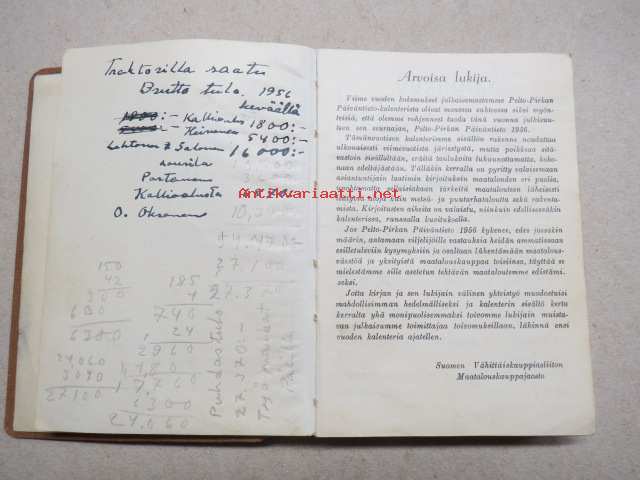 Traktorilla saatu
Brutto tulo. 1956
keväällä
Kallioalus 1800:-
Heinonen 5400:-
Lehtonen & Salonen 16000:-
Portanen
O. Oksanen
Antikvariaatti.net
150
42
300
600
6300
24060
3040
27100
185
4
740
24
2960
24.060
27.100
Puhdastulo
27.370:-
Arvoisa lukija.
Viime vuoden kokemukset julkaisemastamme Pelto-Pirkan
Päiväntieto-kalenterista olivat monessa suhteessa siksi myön-
teisiä, että olemme rohjenneet tuoda tänä vuonna julkisuu-
teen sen seuraajan, Pelto-Pirkan Päiväntieto 1956.
Tämänvuotisen kalenterin sisällön rakenne noudattaa
ulkonaisesti viimevuotista järjestystä, mutta poikkeaa sitä-
vastoin sisällöltään, eräitä taulukoita lukuunottamatta, koko-
naan edeltäjästään. Tälläkin kerralla on pyritty valaisemaan
asiantuntijain laatimin kirjoituksin maatalouden eri puolia,
unohtamatta sellaisiakaan tärkeitä maatalouteen läheisesti
liittyviä aloja kuin metsä- ja puutarhataloutta sekä rakenta-
mista. Kirjoitusten aiheita on valaistu, niinkuin edellisessäkin
kalenterissa, runsaalla kuvituksella.
Jos Pelto-Pirkan Päiväntieto 1956 kykenee, edes jossakin
määrin, antamaan viljelijöille vastauksia heidän ammatissaan
esillletuleviin kysymyksiin ja osaltaan lähentämään maatalous-
väestöä ja yksityistä maatalouskauppaa toisiinsa, täyttää se
mielestämme sille asetetun tehtävän maataloutemme edistämi-
seksi.
Jotta kirjan ja sen lukijain välinen yhteistyö muodostuisi
mahdollisimman hedelmälliseksi ja kalenterin sisältö kerta
kerralta yhä monipuolisemmaksi toivomme lukijain muista-
van julkaisumme toimittajaa toivomuksillaan, lähinnä ensi
vuoden kalenteria ajatellen.
Suomen Vähittäiskauppiasliiton
Maatalouskauppajaosto